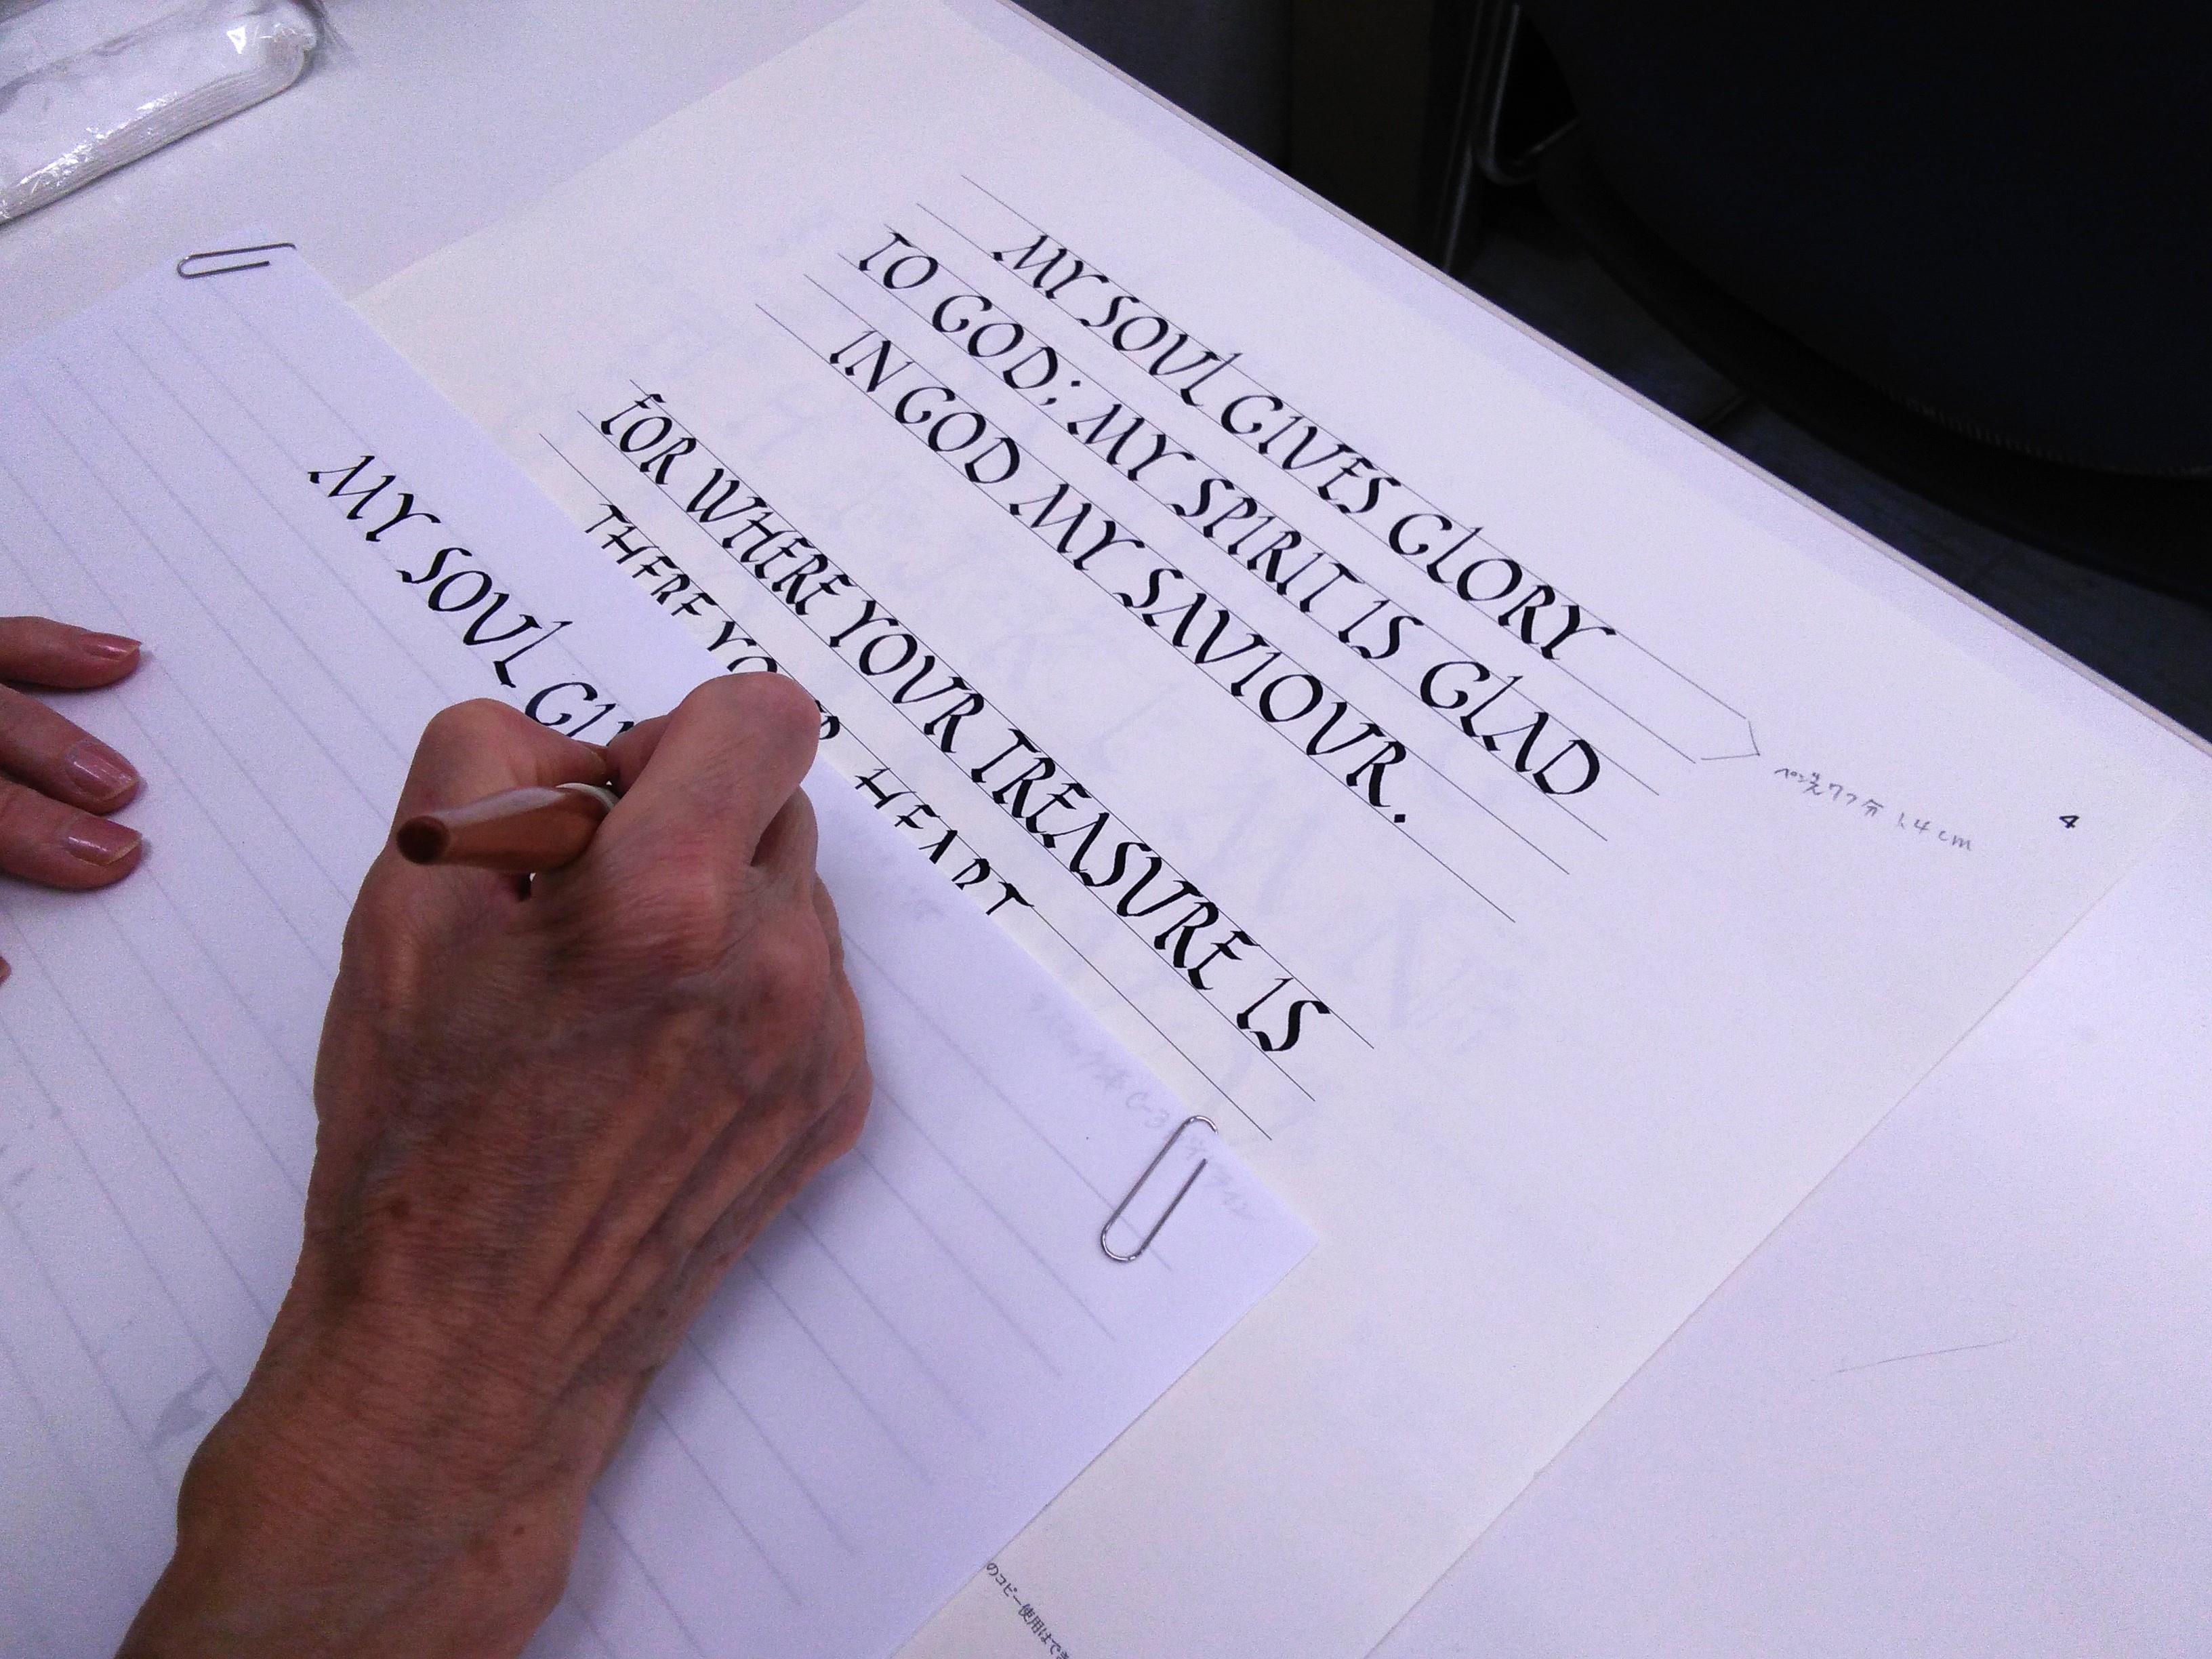 MY SOUL GIVES GLORY
TO GOD; MY SPIRIT IS GLAD
IN GOD MY SAVIOUR.
FOR WHERE YOUR TREASURE IS
THERE YOUR HEART
4
1.4cm
MY SOUL GI
のコピー使用はでき